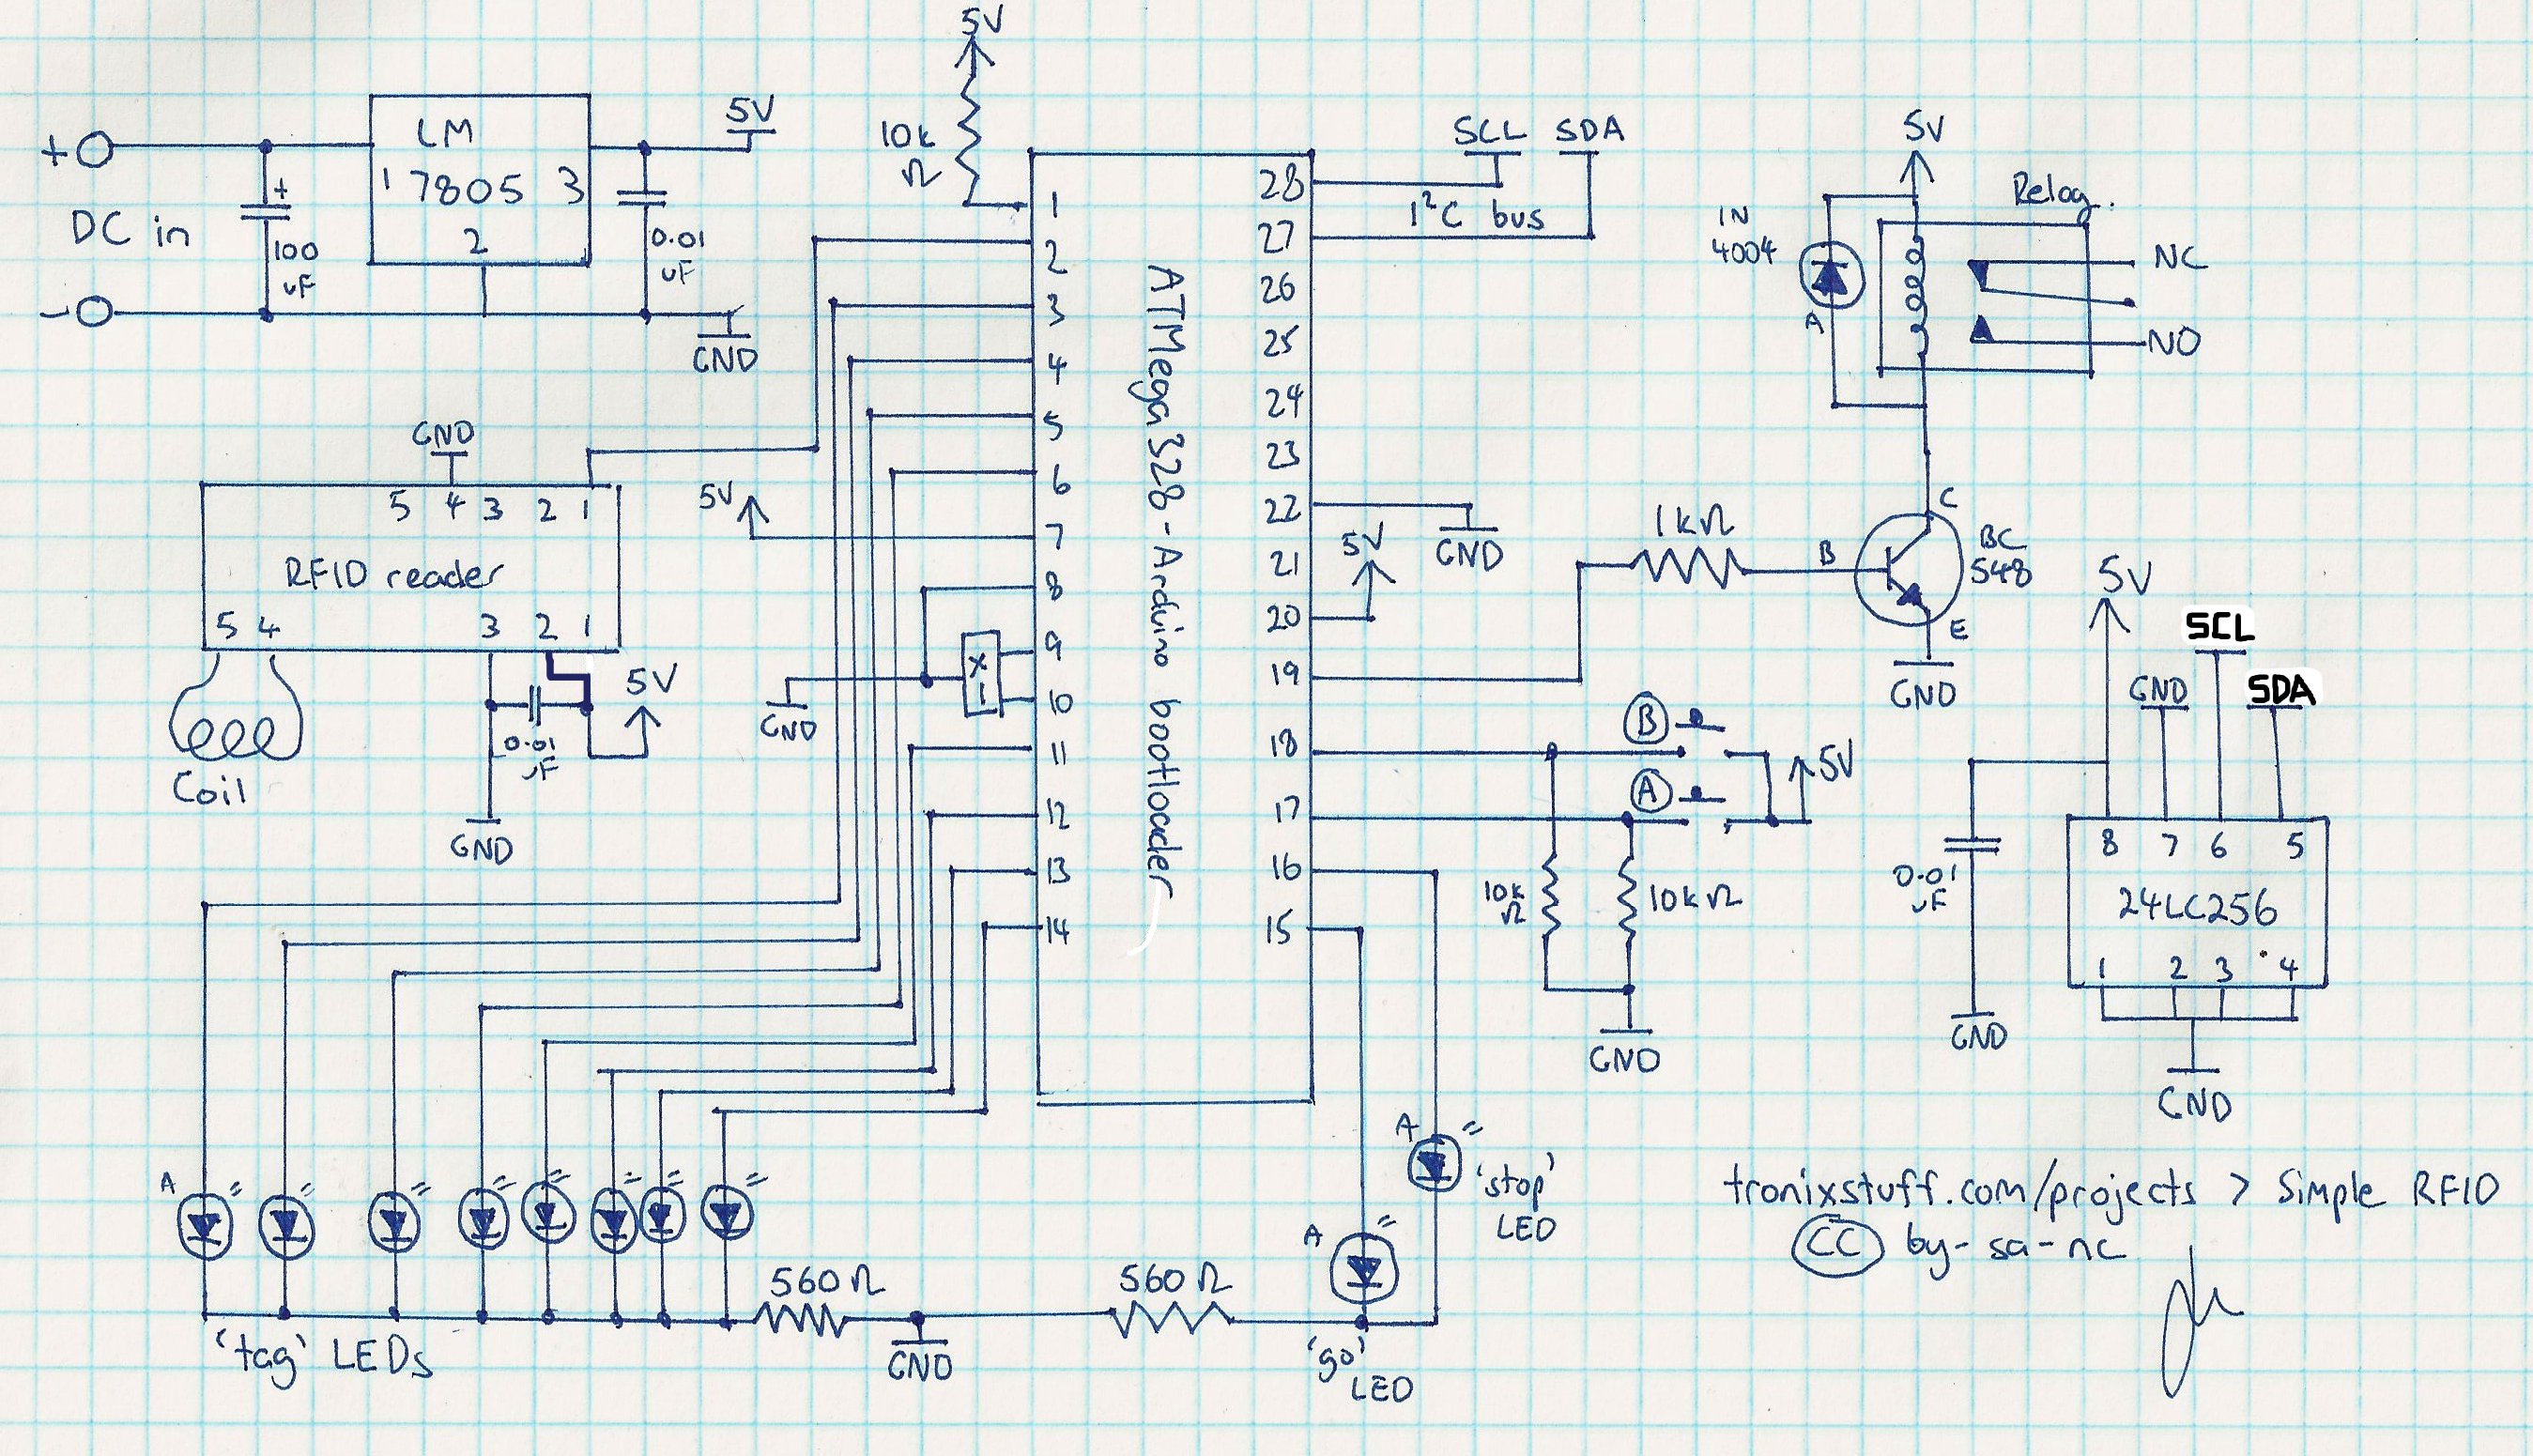 5V
+
DC in
-
LM
1 7805 3
2
+
100
uF
0.01
uF
5V
GND
10k
Ω
1
2
3
4
5
6
7
8
9
10
11
12
13
14
ATMega328-Arduino bootloader
28
27
26
25
24
23
22
21
20
19
18
17
16
15
SCL SDA
I²C bus
5V
Relay.
1N
4004
A
NC
NO
GND
5 4 3 2 1
RFID reader
5 4 3 2 1
Coil
0.01
uF
5V
GND
5V
X
GND
GND
5V
1kΩ
B
C
BC
548
E
GND
B
A
5V
10k
Ω
10kΩ
GND
5V
GND
SCL
SDA
8 7 6 5
24LC256
1 2 3 4
0.01
uF
GND
GND
A
'tag' LEDs
560Ω
GND
560Ω
A
'go'
LED
A
'stop'
LED
tronixstuff.com/projects > Simple RFID
CC by-sa-nc